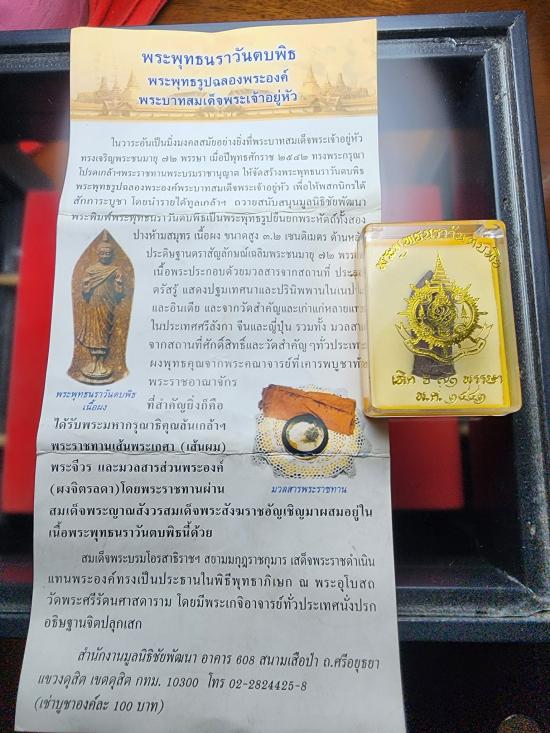 พระพุทธนราวันตบพิธ
พระพุทธรูปฉลองพระองค์
พระบาทสมเด็จพระเจ้าอยู่หัว
ในวาระอันเป็นมิ่งมงคลสมัยอย่างยิ่งที่พระบาทสมเด็จพระเจ้าอยู่หัว
ทรงเจริญพระชนมายุ ๗๒ พรรษา เมื่อปีพุทธศักราช ๒๕๔๒ ทรงพระกรุณา
โปรดเกล้าฯพระราชทานพระบรมราชานุญาต ให้จัดสร้างพระพุทธนราวันตบพิธ
พระพุทธรูปฉลองพระองค์พระบาทสมเด็จพระเจ้าอยู่หัว เพื่อให้พสกนิกรได้
สักการะบูชา โดยนำรายได้ทูลเกล้าฯ ถวายสนับสนุนมูลนิธิชัยพัฒนา
พระพิมพ์พระพุทธนราวันตบพิธเป็นพระพุทธรูปยืนยกพระหัตถ์ทั้งสอง
ปางห้ามสมุทร เนื้อผง ขนาดสูง ๓.๒ เซนติเมตร ด้านหลัง
ประดิษฐานตราสัญลักษณ์เฉลิมพระชนมายุ ๗๒ พรรษา
เนื้อพระประกอบด้วยมวลสารจากสถานที่
ตรัสรู้ แสดงปฐมเทศนาและปรินิพพานในเนปาล
และอินเดีย และจากวัดสำคัญและเก่าแก่หลายแห่ง
ในประเทศศรีลังกา จีนและญี่ปุ่น รวมทั้ง มวลสาร
จากสถานที่ศักดิ์สิทธิ์และวัดสำคัญๆทั่วประเทศ
ผงพุทธคุณจากพระคณาจารย์ที่เคารพบูชาทั่ว
พระราชอาณาจักร
พระพุทธนราวันตบพิธ
เนื้อผง
ที่สำคัญยิ่งก็คือ
ได้รับพระมหากรุณาธิคุณล้นเกล้าฯ
พระราชทานเส้นพระเกศา (เส้นผม)
พระจีวร และมวลสารส่วนพระองค์
(ผงจิตรลดา)โดยพระราชทานผ่าน
มวลสารพระราชทาน
สมเด็จพระญาณสังวรสมเด็จพระสังฆราชอัญเชิญมาผสมอยู่ใน
เนื้อพระพุทธนราวันตบพิธนี้ด้วย
สมเด็จพระบรมโอรสาธิราชฯ สยามมกุฎราชกุมาร เสด็จพระราชดำเนิน
แทนพระองค์ทรงเป็นประธานในพิธีพุทธาภิเษก ณ พระอุโบสถ
วัดพระศรีรัตนศาสดาราม โดยมีพระเกจิอาจารย์ทั่วประเทศนั่งปรก
อธิษฐานจิตปลุกเสก
สำนักงานมูลนิธิชัยพัฒนา อาคาร 608 สนามเสือป่า ถ.ศรีอยุธยา
แขวงดุสิต เขตดุสิต กทม. 10300 โทร 02-2824425-8
(เช่าบูชาองค์ละ 100 บาท)
พระพุทธนราวันตบพิธ
พรรษา
พ.ศ. ๒๕๔๒